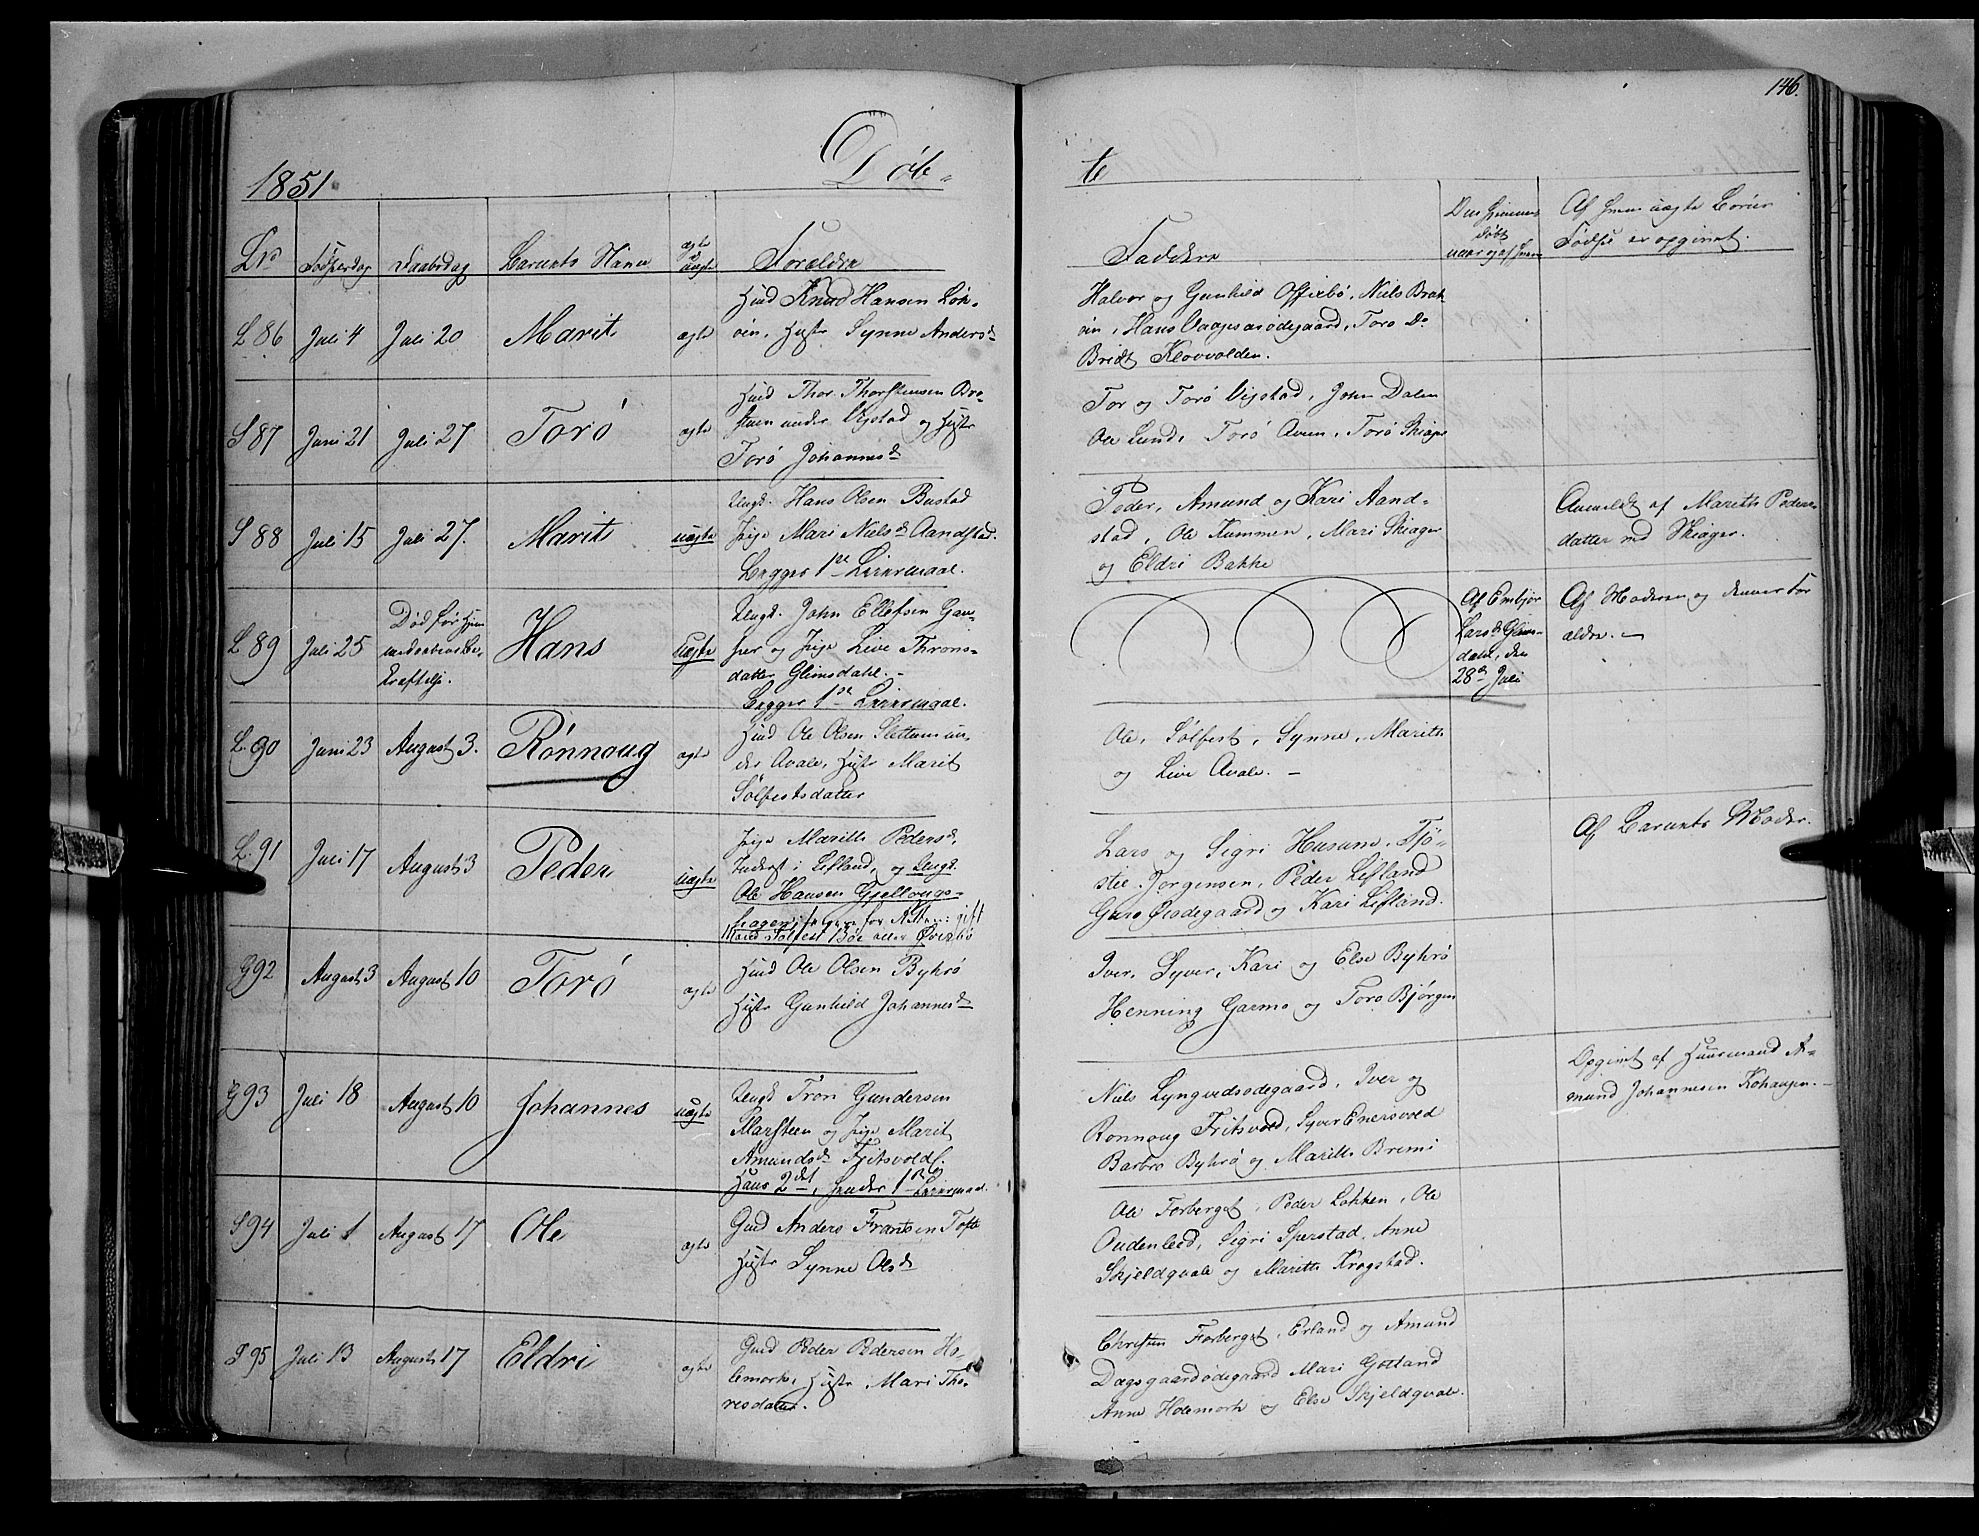 146.
1851
Døb-
te
No
Fødselsdag
Daabsdag
Barnets Navn
ægte
uægte
Forældre
Faddere
Om hjemme
døbt
naar og af hvem
Af hvem uægte Børns
Fødsel er opgivet.
L 86
Juli 4
Juli 20
Marit
ægte
Huusmd Knud Hansen Løk-
øin, Hustr Synne Andersd.
Halvor og Gunhild Offirbø, Niels Brat-
øin, Hans Vaagesarødegaard, Toro Do
Bridt Klovvolden.
S 87
Juni 21
Juli 27
Torø
ægte
Huusmd Thor Thorstensen Bro-
steen under Visstad og Hustr
Torø Johannesd.
Tor og Torø Visstad, John Dalen
Ole Lund, Torø Aaen, Torø Skiager
S 88
Juli 15
Juli 27.
Marit
uægte
Ungk. Hans Olsen Bustad
Pige Mari Nielsd. Aandstad.
Begges 1ste Leiermaal.
Peder, Amund og Kari Aand-
stad, Ole Kummen, Mari Skiager
og Eldri Bakke
Anmeldt af Marith Peders-
datter ved Skiager.
L 89
Juli 25
Død før Hjem-
medaabens Be-
kræftelse.
Hans
uægte
Ungk. John Ellefsen Gau-
per og Pige Live Throns-
datter Glimsdahl. -
Begges 1ste Leiermaal.
Af Embjør
Larsd. Glims-
dahl, den
28de Juli
Af Moderen og dennes For-
ældre. -
L 90
Juni 23
August 3.
Rønnoug
ægte
Huusmd Ole Olsen Slettum un-
der Avale, Hustr Marit
Sølfestsdatter
Ole, Sølfest, Synne, Marith
og Live Avale. -
L 91
Juli 17
August 3
Peder
uægte
Pige Marith Pedersd.
Inderst i Lifland, og Ungk.
Ole Hansen Gjellongs-
Lars og Sigri Husum, Tjø-
stel Jørgensen, Peder Lifland
Guro Øiodegaard og Kari Lifland.
Af Barnets Moder.
G 92
August 3
August 10
Torø
ægte
Huusmd Ole Olsen Byhrø
Hustr Gunhild Johannesd.
Iver, Syver, Kari og Else Byhrø
Henning Garmo og Toro Bjørgen
G 93
Juli 18
August 10
Johannes
uægte
Ungk Tron Gundersen
Marsteen og Pige Marit
Amundsd. Fritsvold.
Hans 2det, hendes 1ste Leiermaal.
Niels Lyngvedsødegaard, Iver og
Rønnoug Fritsvold, Syver Enersvold
Barbro Byhrø og Marith Bremi
Opgivet af Huusmand A-
mund Johannesen Kohaugen. -
S 94
Juli 1
August 17
Ole
ægte
Gmd Anders Frantsen Tofte
Hustr Synne Olsd.
Ole Forberget, Peder Løkken, Ole
Oudenleed, Sigri Sperstad, Anne
Skjeldqvale og Marith Krogstad.
S 95
Juli 13
August 17
Eldri
ægte
Gmd Peder Pedersen Ho-
lemork, Hustr Mari Tho-
resdatter.
Christen Forberget, Erland og Amund
Dagsgaardødegaard Mari Gotland
Anne Holemork og Else Skjeldqvale.